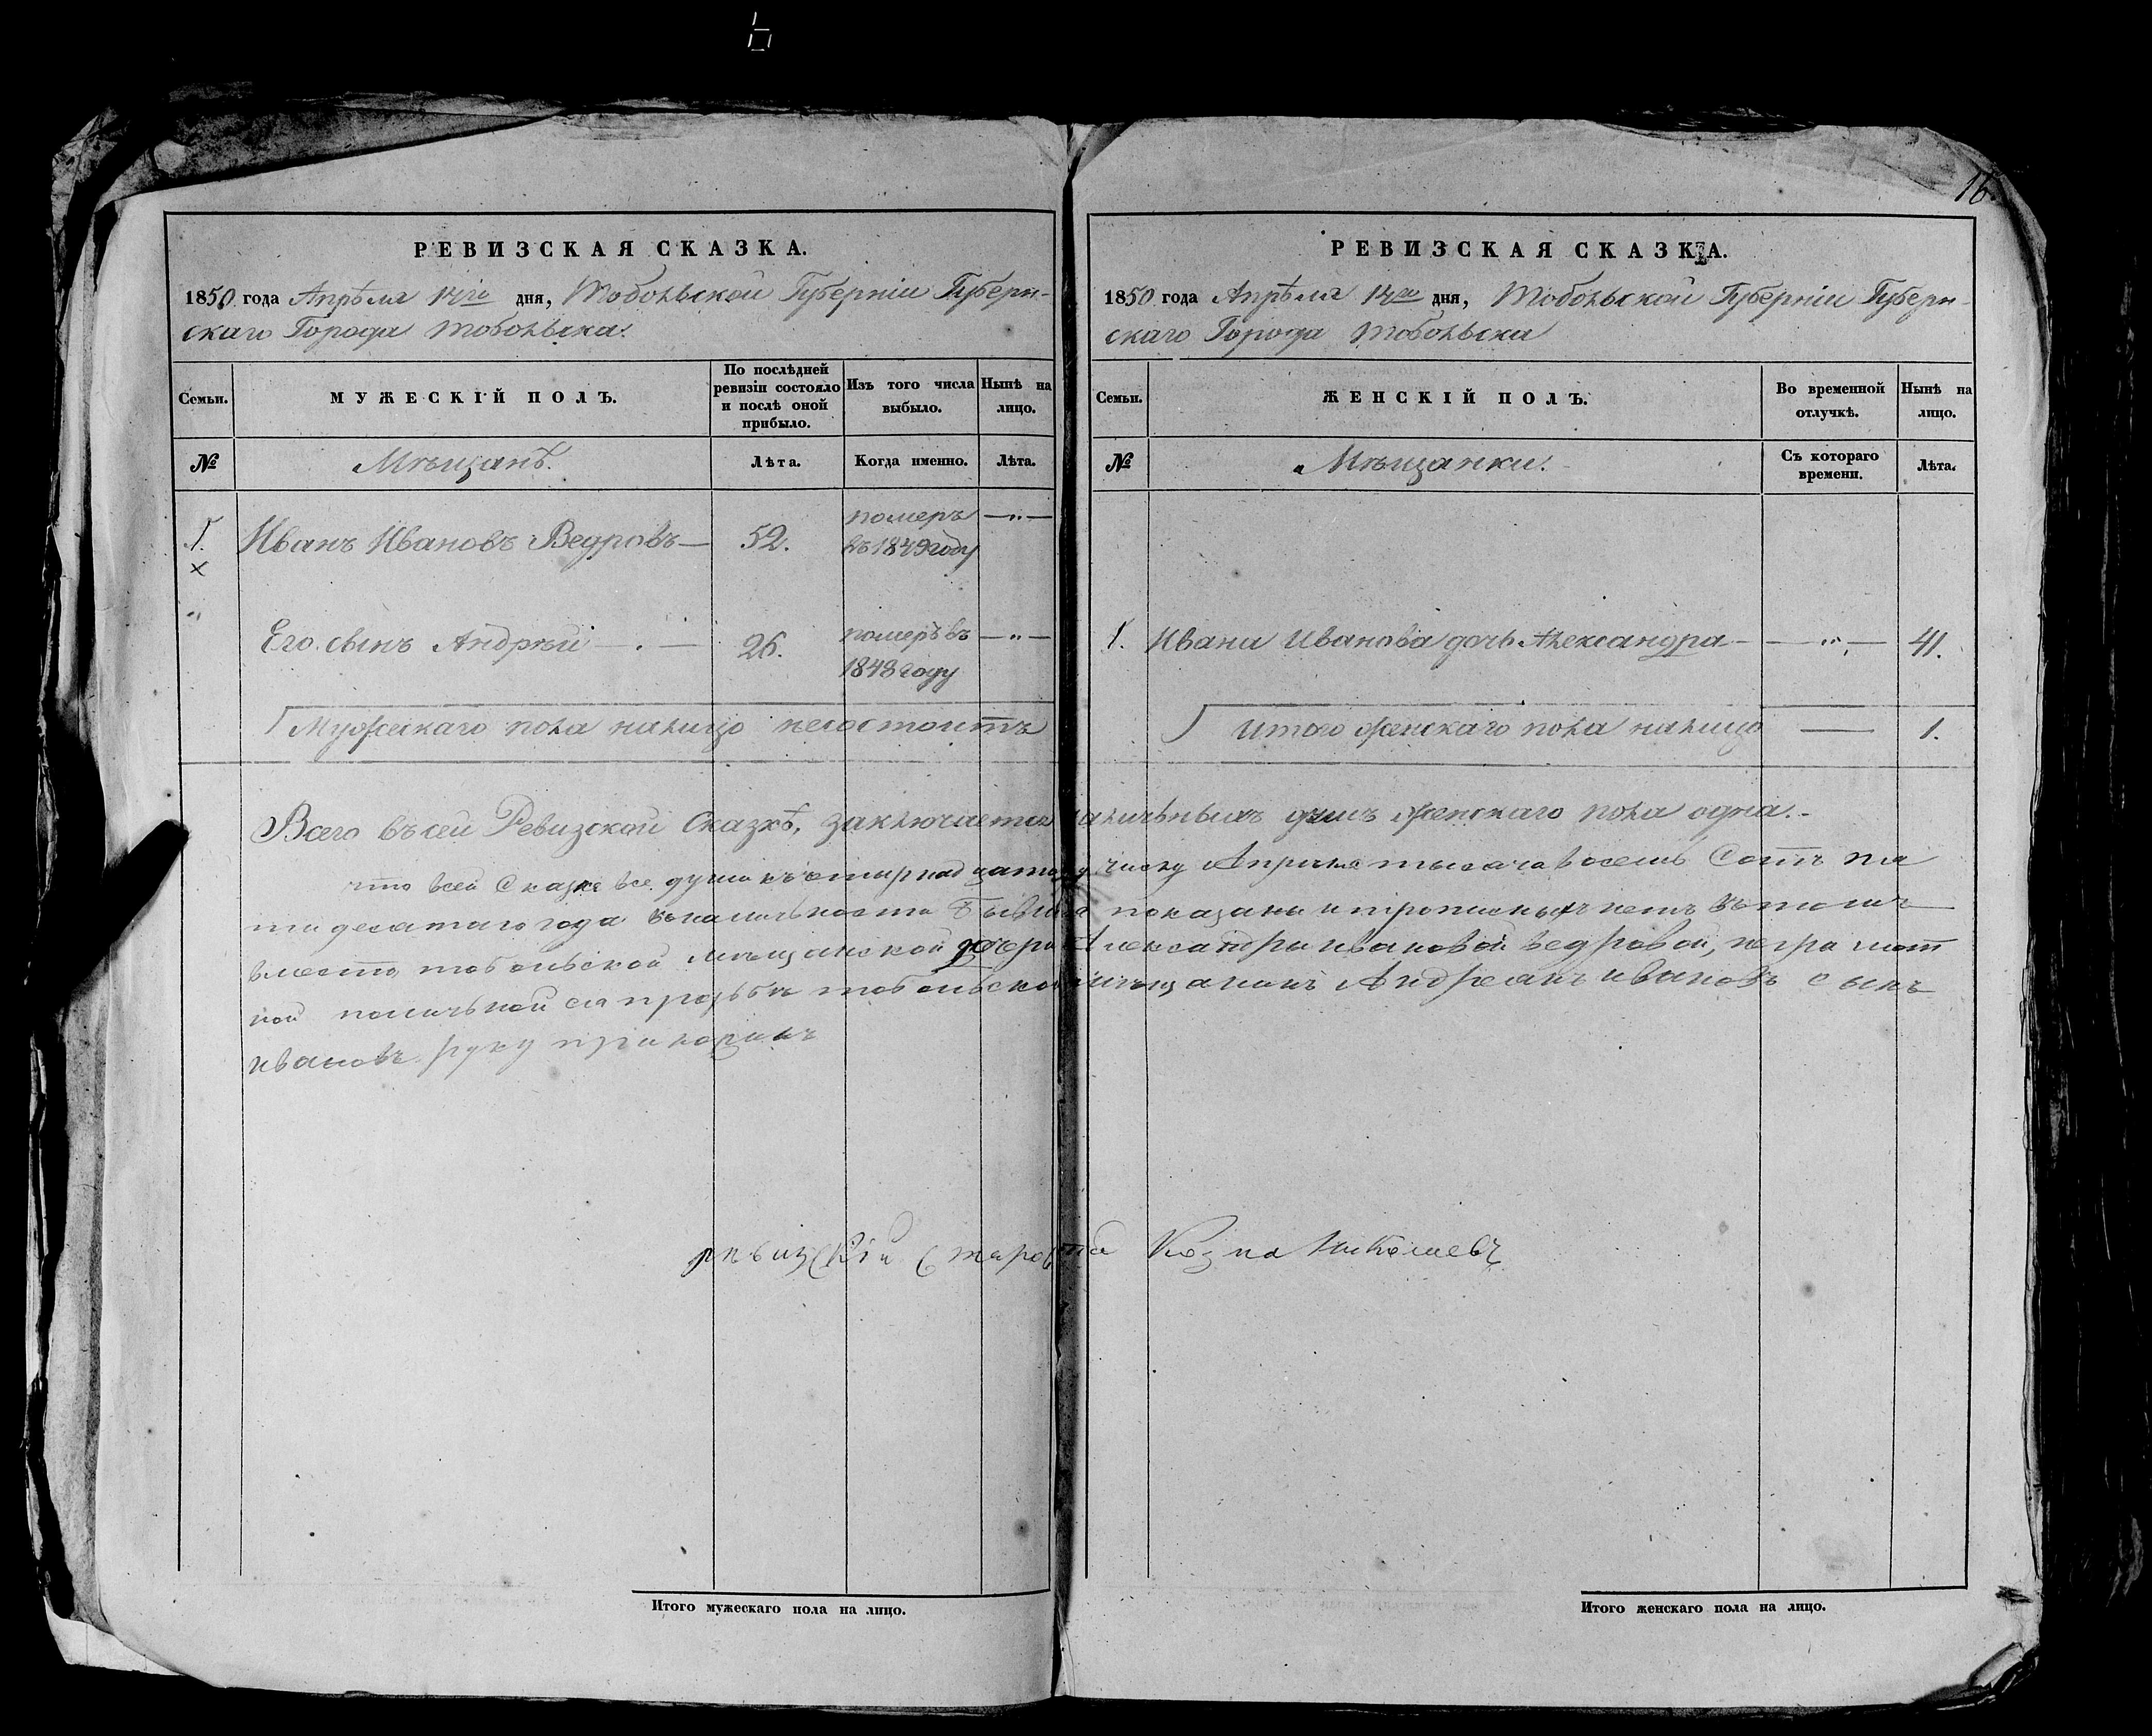 16.
РЕВИЗСКАЯ СКАЗКА.
1850 года Апрѣля 14го дня, Тобольской Губерніи Губерн-
скаго Города Тобольска.
Семьи.
МУЖЕСКІЙ ПОЛЪ.
По послѣдней ревизіи состояло и послѣ оной прибыло.
Изъ того числа выбыло.
Нынѣ на лицо.
№
Мѣщанъ.
Лѣта.
Когда именно.
Лѣта.
1. Иванъ Ивановъ Ведровъ — 52. померъ — " —
× въ 1849 году
" Его сынъ Андрѣй — . — 26. померъ въ — " —
1848 году
Мужескаго пола налицо несостоитъ
РЕВИЗСКАЯ СКАЗКА.
1850 года Апрѣля 14го дня, Тобольской Губерніи Губерн-
скаго Города Тобольска
Семьи.
ЖЕНСКІЙ ПОЛЪ.
Во временной отлучкѣ.
Нынѣ на лицо.
№
Мѣщанки.
Съ котораго времени.
Лѣта.
1. Ивана Иванова дочь Александра — — " — 41.
Итого женскаго пола налицо — 1.
Всего въ сей Ревизской Сказкѣ, заключается наличныхъ душъ женскаго пола одна.-
что всей Сказке все души къ четырнадцатому числу Апреля тысяча восемь Сотъ пя
ти десятаго года въ наличности бывшiя показаны и прописныхъ нетъ въ томъ
вместо тобольской мѣщанской дочери Александры ивановой ведровой, неграмот
ной поличьной ея прозьбѣ тобольской мѣщанинъ Андреанъ ивановъ сынъ
ивановъ руку приложилъ
ревизскiй Староста Козма
Итого мужескаго пола на лицо.
Итого женскаго пола на лицо.